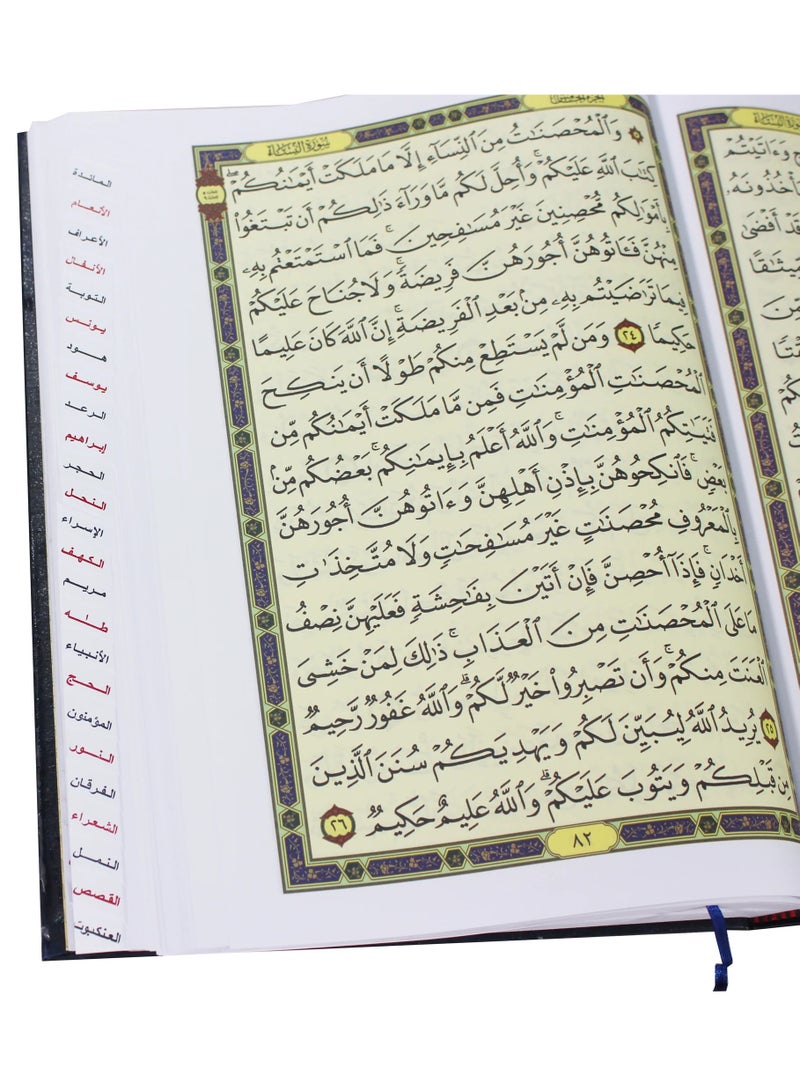 سُورَةُ النِّسَاءِ
الجزء الخامس
وَٱلْمُحْصَنَٰتُ مِنَ ٱلنِّسَآءِ إِلَّا مَا مَلَكَتْ أَيْمَٰنُكُمْ ۖ
كِتَٰبَ ٱللَّهِ عَلَيْكُمْ ۚ وَأُحِلَّ لَكُم مَّا وَرَآءَ ذَٰلِكُمْ أَن تَبْتَغُوا۟
بِأَمْوَٰلِكُم مُّحْصِنِينَ غَيْرَ مُسَٰفِحِينَ ۚ فَمَا ٱسْتَمْتَعْتُم بِهِۦ
مِنْهُنَّ فَـَٔاتُوهُنَّ أُجُورَهُنَّ فَرِيضَةً ۚ وَلَا جُنَاحَ عَلَيْكُمْ
فِيمَا تَرَٰضَيْتُم بِهِۦ مِنۢ بَعْدِ ٱلْفَرِيضَةِ ۚ إِنَّ ٱللَّهَ كَانَ عَلِيمًا
حَكِيمًا ٢٤ وَمَن لَّمْ يَسْتَطِعْ مِنكُمْ طَوْلًا أَن يَنكِحَ
ٱلْمُحْصَنَٰتِ ٱلْمُؤْمِنَٰتِ فَمِن مَّا مَلَكَتْ أَيْمَٰنُكُم مِّن
فَتَيَٰتِكُمُ ٱلْمُؤْمِنَٰتِ ۚ وَٱللَّهُ أَعْلَمُ بِإِيمَٰنِكُم ۚ بَعْضُكُم مِّنۢ
بَعْضٍ ۚ فَٱنكِحُوهُنَّ بِإِذْنِ أَهْلِهِنَّ وَءَاتُوهُنَّ أُجُورَهُنَّ
بِٱلْمَعْرُوفِ مُحْصَنَٰتٍ غَيْرَ مُسَٰفِحَٰتٍ وَلَا مُتَّخِذَٰتِ
أَخْدَانٍ ۚ فَإِذَآ أُحْصِنَّ فَإِنْ أَتَيْنَ بِفَٰحِشَةٍ فَعَلَيْهِنَّ نِصْفُ
مَا عَلَى ٱلْمُحْصَنَٰتِ مِنَ ٱلْعَذَابِ ۚ ذَٰلِكَ لِمَنْ خَشِىَ
ٱلْعَنَتَ مِنكُمْ ۚ وَأَن تَصْبِرُوا۟ خَيْرٌ لَّكُمْ ۗ وَٱللَّهُ غَفُورٌ رَّحِيمٌ
٢٥ يُرِيدُ ٱللَّهُ لِيُبَيِّنَ لَكُمْ وَيَهْدِيَكُمْ سُنَنَ ٱلَّذِينَ
مِن قَبْلِكُمْ وَيَتُوبَ عَلَيْكُمْ ۗ وَٱللَّهُ عَلِيمٌ حَكِيمٌ ٢٦
٨٢
المائدة
الأنعام
الأعراف
الأنفال
التوبة
يونس
هود
يوسف
الرعد
إبراهيم
الحجر
النحل
الإسراء
الكهف
مريم
طـٰه
الأنبياء
الحج
المؤمنون
النور
الفرقان
الشعراء
النمل
القصص
العنكبوت
وَءَاتَيْتُمْ
أَتَأْخُذُونَهُۥ
قَدْ أَفْضَىٰ
مِّيثَٰقًا